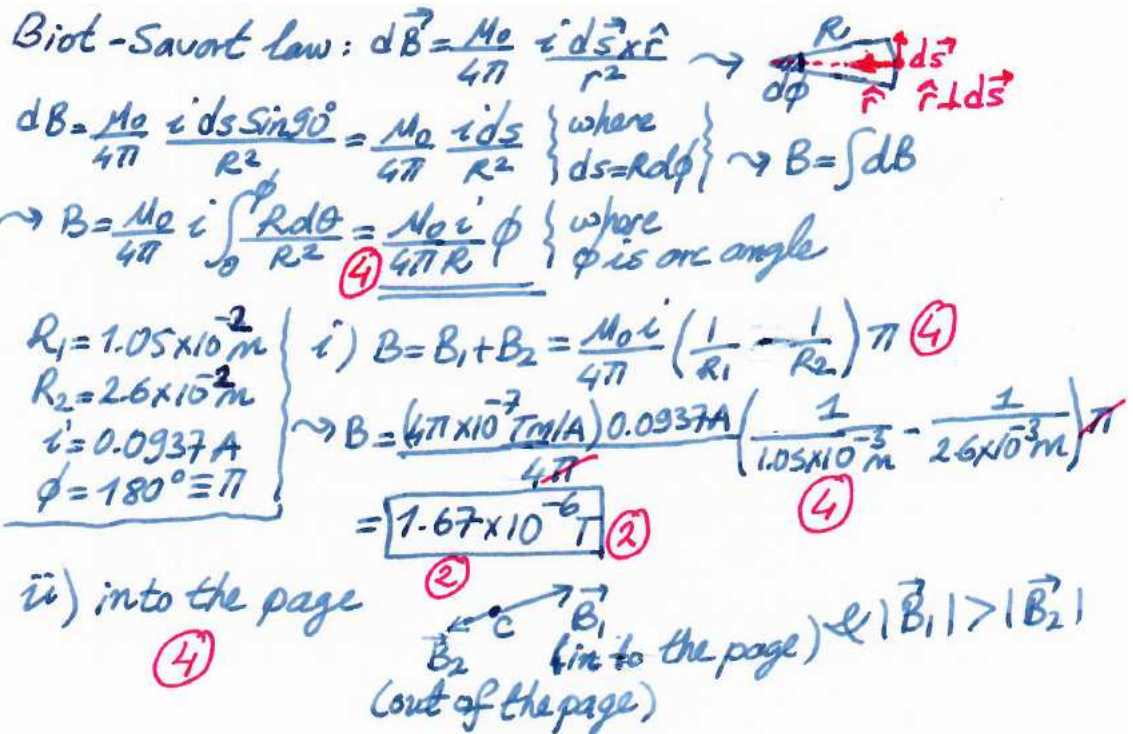 Biot-Savart law: dB⃗ = μ₀/4π i ds⃗ x r̂/r² ⤳ R dφ ds⃗ r̂ r̂ ⊥ ds⃗
dB = μ₀/4π i ds Sin90°/R² = μ₀/4π i ds/R² } where ds = Rdφ } ⤳ B = ∫dB
⤳ B = μ₀/4π i ∫₀^φ Rdθ/R² = μ₀ i/4πR φ { where φ is arc angle
④
R₁ = 1.05x10⁻² m
R₂ = 2.6x10⁻² m
i = 0.0937 A
φ = 180° ≡ π
i) B = B₁ + B₂ = μ₀ i/4π (1/R₁ - 1/R₂) π ④
⤳ B = (4π x 10⁻⁷ Tm/A) 0.0937A/4π (1/1.05x10⁻³m - 1/2.6x10⁻³m) π
④
= 1.67x10⁻⁶ T ②
②
ii) into the page
④
B⃗₂ C B⃗₁ & |B⃗₁| > |B⃗₂|
(in to the page)
(out of the page)